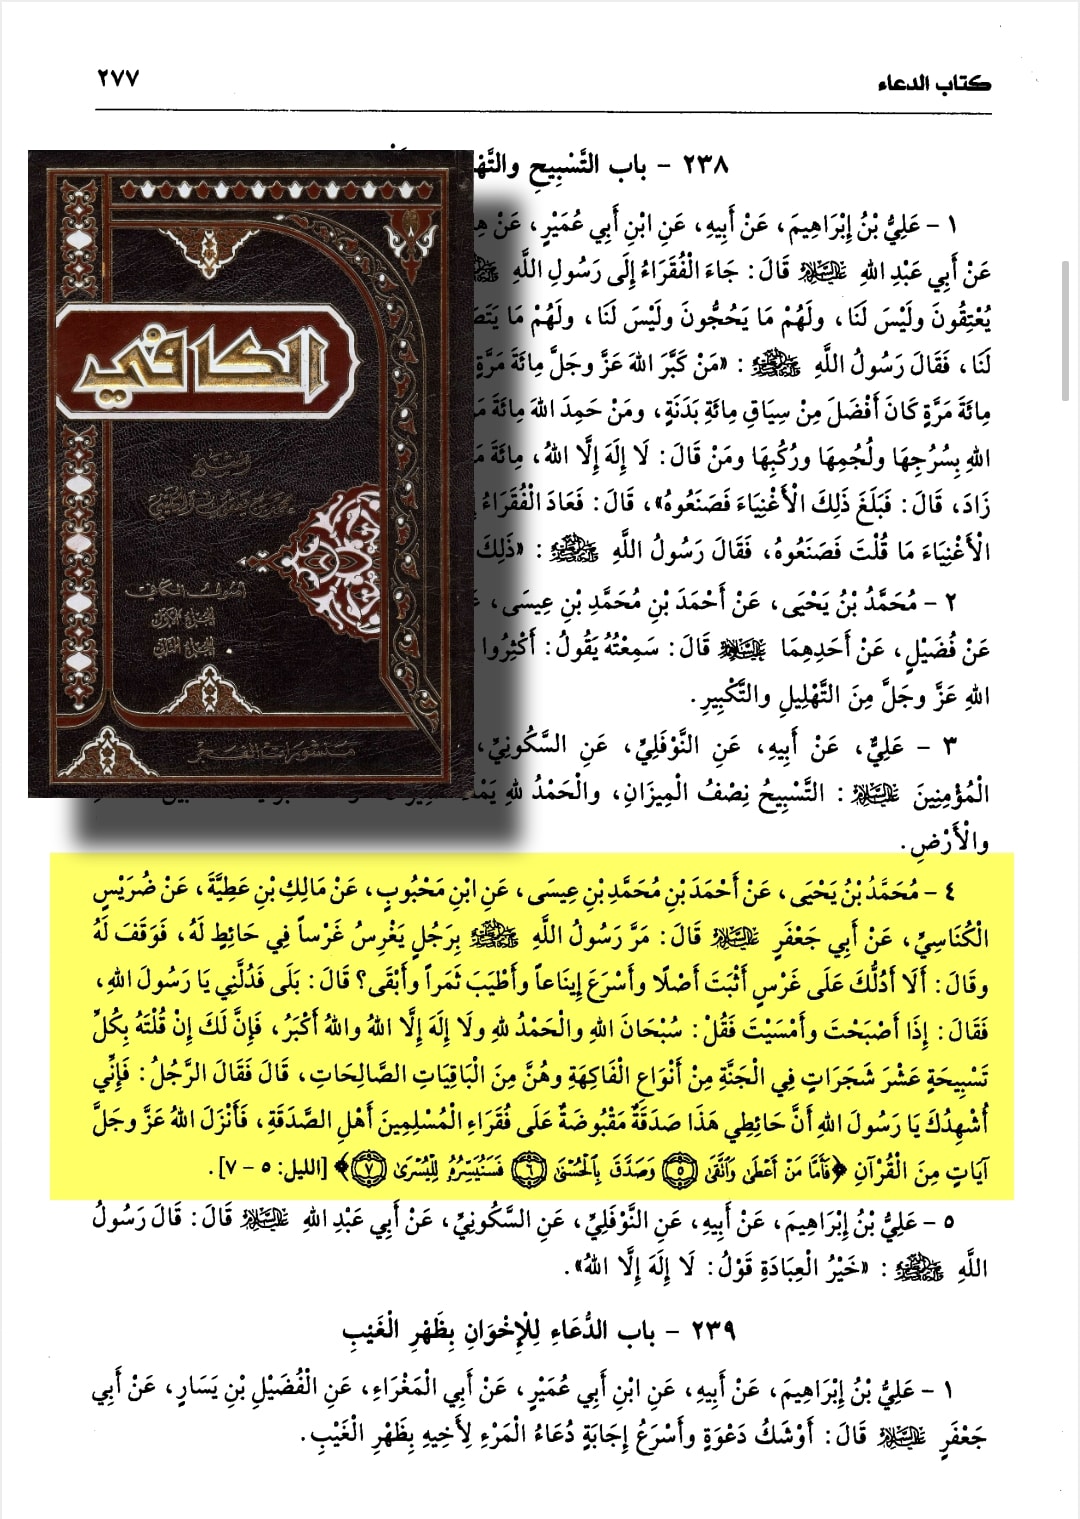 كتاب الدعاء
٢٧٧
٢٣٨ - باب التَّسْبِيحِ والتَّهْ
١ - عَلِيُّ بْنُ إِبْرَاهِيمَ، عَنْ أَبِيهِ، عَنِ ابْنِ أَبِي عُمَيْرٍ، عَنْ
عَنْ أَبِي عَبْدِ اللهِ عَلَيْهِ السَّلَام قَالَ: جَاءَ الْفُقَرَاءُ إِلَى رَسُولِ اللَّهِ
يُعْتِقُونَ ولَيْسَ لَنَا، ولَهُمْ مَا يَحُجُّونَ ولَيْسَ لَنَا، ولَهُمْ مَا
لَنَا، فَقَالَ رَسُولُ اللَّهِ ﷺ: «مَنْ كَبَّرَ اللهَ عَزَّ وجَلَّ مِائَةَ مَرَّةٍ
مِائَةَ مَرَّةٍ كَانَ أَفْضَلَ مِنْ سِيَاقِ مِائَةِ بَدَنَةٍ، ومَنْ حَمِدَ اللهَ مِائَةَ
اللهِ بِسُرُجِهَا ولُجُمِهَا ورُكُبِهَا ومَنْ قَالَ: لَا إِلَهَ إِلَّا اللهُ، مِائَةَ
زَادَ، قَالَ: فَبَلَغَ ذَلِكَ الْأَغْنِيَاءَ فَصَنَعُوهُ»، قَالَ: فَعَادَ الْفُقَرَاءُ
الْأَغْنِيَاءَ مَا قُلْتَ فَصَنَعُوهُ، فَقَالَ رَسُولُ اللَّهِ ﷺ: «ذَلِكَ
٢ - مُحَمَّدُ بْنُ يَحْيَى، عَنْ أَحْمَدَ بْنِ مُحَمَّدِ بْنِ عِيسَى،
عَنْ فُضَيْلٍ، عَنْ أَحَدِهِمَا عَلَيْهِ السَّلَام قَالَ: سَمِعْتُهُ يَقُولُ: أَكْثِرُوا
اللهِ عَزَّ وجَلَّ مِنَ التَّهْلِيلِ والتَّكْبِيرِ.
٣ - عَلِيٌّ، عَنْ أَبِيهِ، عَنِ النَّوْفَلِيِّ، عَنِ السَّكُونِيِّ،
الْمُؤْمِنِينَ عَلَيْهِ السَّلَام: التَّسْبِيحُ نِصْفُ الْمِيزَانِ، والْحَمْدُ للهِ
والْأَرْضِ.
٤ - مُحَمَّدُ بْنُ يَحْيَى، عَنْ أَحْمَدَ بْنِ مُحَمَّدِ بْنِ عِيسَى، عَنِ ابْنِ مَحْبُوبٍ، عَنْ مَالِكِ بْنِ عَطِيَّةَ، عَنْ ضُرَيْسٍ
الْكُنَاسِيِّ، عَنْ أَبِي جَعْفَرٍ عَلَيْهِ السَّلَام قَالَ: مَرَّ رَسُولُ اللَّهِ ﷺ بِرَجُلٍ يَغْرِسُ غَرْساً فِي حَائِطٍ لَهُ، فَوَقَفَ لَهُ
وقَالَ: أَلَا أَدُلُّكَ عَلَى غَرْسٍ أَثْبَتَ أَصْلًا وأَسْرَعَ إِينَاعاً وأَطْيَبَ ثَمَراً وأَبْقَى؟ قَالَ: بَلَى فَدُلَّنِي يَا رَسُولَ اللهِ،
فَقَالَ: إِذَا أَصْبَحْتَ وأَمْسَيْتَ فَقُلْ: سُبْحَانَ اللهِ والْحَمْدُ للهِ ولَا إِلَهَ إِلَّا اللهُ واللهُ أَكْبَرُ، فَإِنَّ لَكَ إِنْ قُلْتَهُ بِكُلِّ
تَسْبِيحَةٍ عَشْرَ شَجَرَاتٍ فِي الْجَنَّةِ مِنْ أَنْوَاعِ الْفَاكِهَةِ وهُنَّ مِنَ الْبَاقِيَاتِ الصَّالِحَاتِ، قَالَ فَقَالَ الرَّجُلُ: فَإِنِّي
أُشْهِدُكَ يَا رَسُولَ اللهِ أَنَّ حَائِطِي هَذَا صَدَقَةٌ مَقْبُوضَةٌ عَلَى فُقَرَاءِ الْمُسْلِمِينَ أَهْلِ الصَّدَقَةِ، فَأَنْزَلَ اللهُ عَزَّ وجَلَّ
آيَاتٍ مِنَ الْقُرْآنِ ﴿فَأَمَّا مَنْ أَعْطَى وَاتَّقَى ٥ وَصَدَّقَ بِالْحُسْنَى ٦ فَسَنُيَسِّرُهُ لِلْيُسْرَى ٧﴾ [الليل: ٥ - ٧].
٥ - عَلِيُّ بْنُ إِبْرَاهِيمَ، عَنْ أَبِيهِ، عَنِ النَّوْفَلِيِّ، عَنِ السَّكُونِيِّ، عَنْ أَبِي عَبْدِ اللهِ عَلَيْهِ السَّلَام قَالَ: قَالَ رَسُولُ
اللَّهِ ﷺ: «خَيْرُ الْعِبَادَةِ قَوْلُ: لَا إِلَهَ إِلَّا اللهُ».
٢٣٩ - باب الدُّعَاءِ لِلْإِخْوَانِ بِظَهْرِ الْغَيْبِ
١ - عَلِيُّ بْنُ إِبْرَاهِيمَ، عَنْ أَبِيهِ، عَنِ ابْنِ أَبِي عُمَيْرٍ، عَنْ أَبِي الْمَغْرَاءِ، عَنِ الْفُضَيْلِ بْنِ يَسَارٍ، عَنْ أَبِي
جَعْفَرٍ عَلَيْهِ السَّلَام قَالَ: أَوْشَكُ دَعْوَةٍ وأَسْرَعُ إِجَابَةٍ دُعَاءُ الْمَرْءِ لِأَخِيهِ بِظَهْرِ الْغَيْبِ.
الكافي
أصول الكافي
الجزء الأول
الجزء الثاني
منشورات الفجر